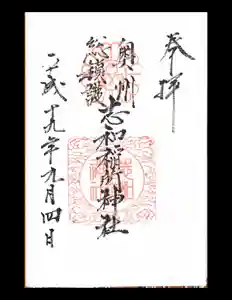 奉拝
奥州
総鎮護
志和稲荷神社
平成十九年九月四日